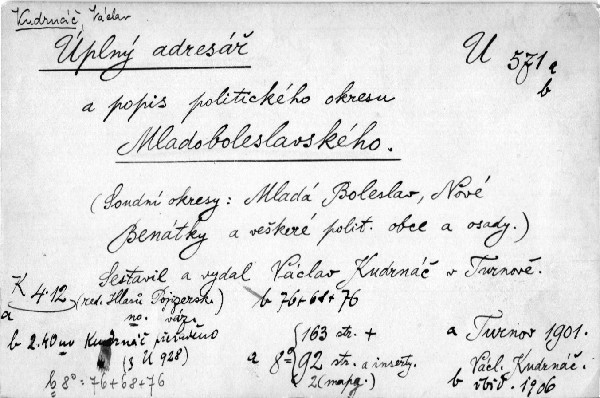 Kudrnáč, Václav
Úplný adresář
U 571 a
b
a popis politického okresu
Mladoboleslavského.
(Soudní okresy: Mladá Boleslav, Nové
Benátky a veškeré polit. obce a osady.)
Sestavil a vydal Václav Kudrnáč v Turnově.
K 4·12 (red. Hlasů Pojizersk.) b 76+68+76
a no. váz.
b 2.40 nv Kudrnáč
(3 U 928)
b 8° = 76+68+76
a 8° { 163 str. +
92 str. a inserty.
2 (mapy.)
a Turnov 1901.
Václ. Kudrnáč.
b ibid. 1906